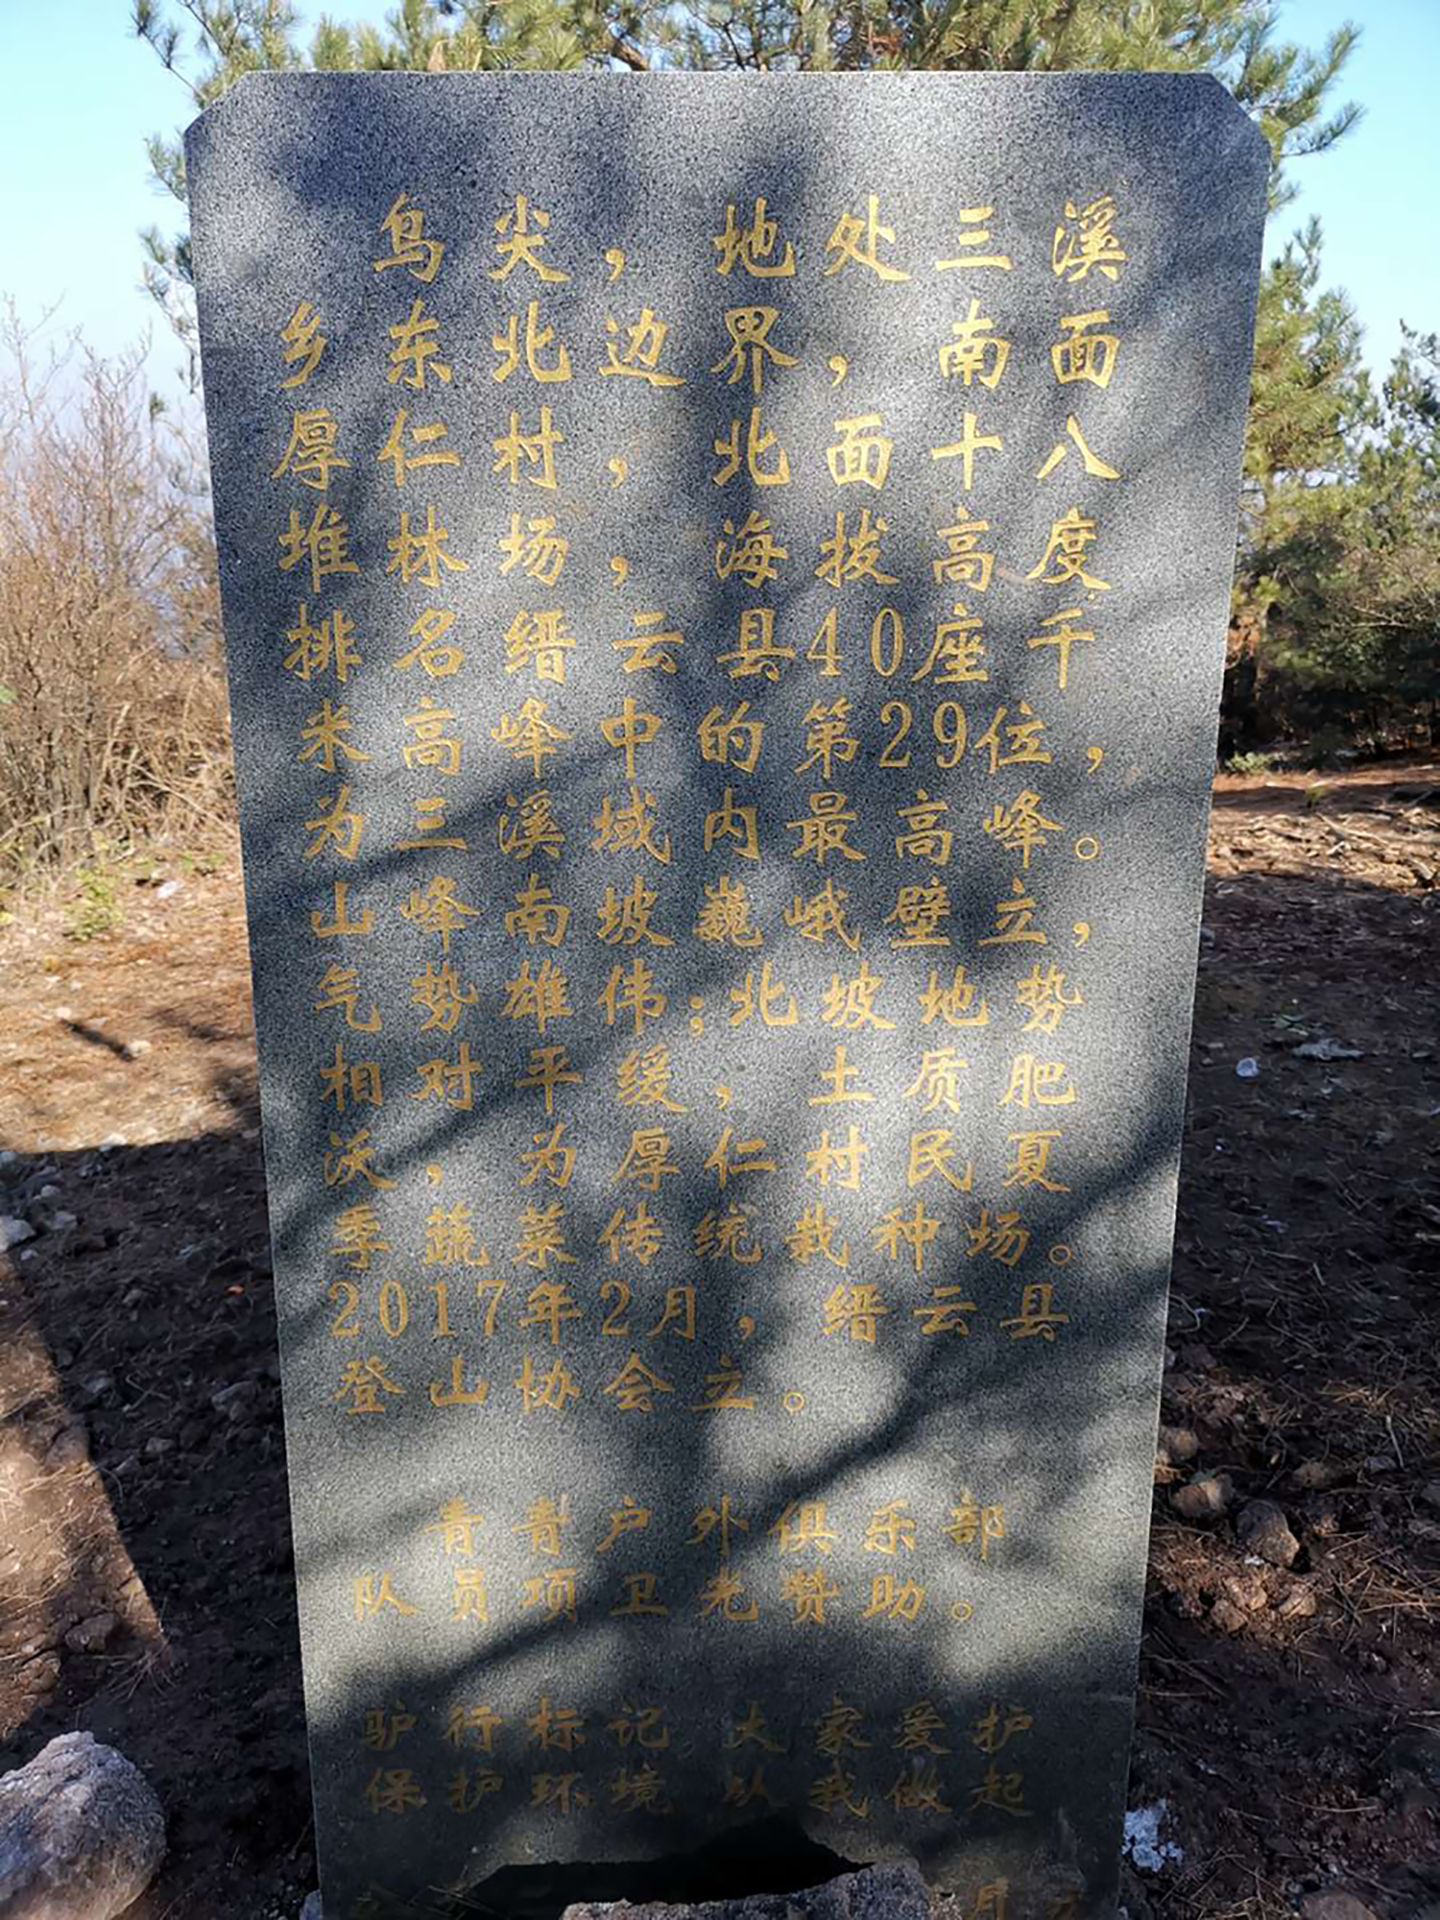 乌尖，地处三溪
乡东北边界，南面
厚仁村，北面十八
堆林场，海拔高度
排名缙云县40座千
米高峰中的第29位，
为三溪域内最高峰。
山峰南坡巍峨壁立，
气势雄伟；北坡地势
相对平缓，土质肥
沃，为厚仁村民夏
季蔬菜传统栽种场。
2017年2月，缙云县
登山协会立。
青青户外俱乐部
队员项卫光赞助。
驴行标记 大家爱护
保护环境 从我做起
月